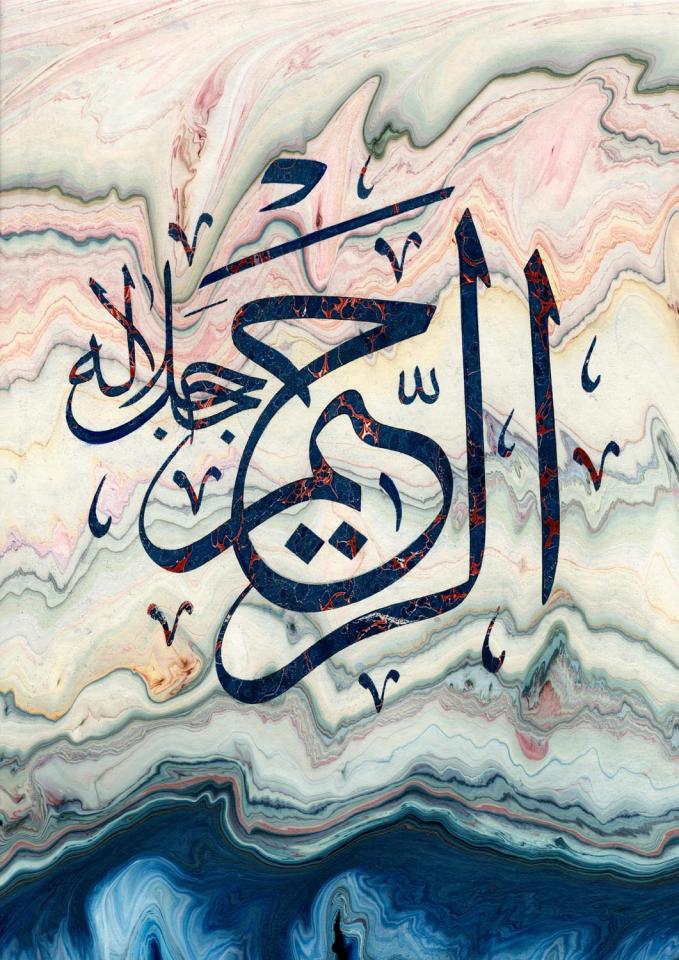 الرحيم
جل جلاله